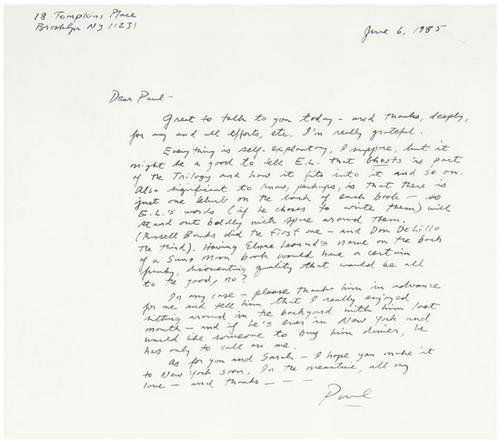 18 Tompkins Place
Brooklyn NY 11231
June 6, 1985
Dear Paul —
Great to talk to you today — and thanks, deeply,
for any and all efforts, etc. I'm really grateful.
Everything is self-explanatory, I suppose, but it
might be a good to tell E.L. that Ghosts is part
of the Trilogy and how it fits into it and so on.
Also significant to know, perhaps, is that there is
just one blurb on the back of each book — so
E.L.'s words (if he choses to write them) will
stand out boldly with space around them.
(Russell Banks did the first one — and Don DeLillo
the third). Having Elmore Leonard's name on the back
of a Sun & Moon book would have a certain
funky, disorienting quality that would be all
to the good, no?
In any case — please thank him in advance
for me and tell him that I really enjoyed
sitting around in the backyard with him last
month — and if he's ever in New York and
would like someone to buy him dinner, he
has only to call on me.
As for you and Sarah — I hope you make it
to New York soon. In the meantime, all my
love — and thanks — — —
Paul